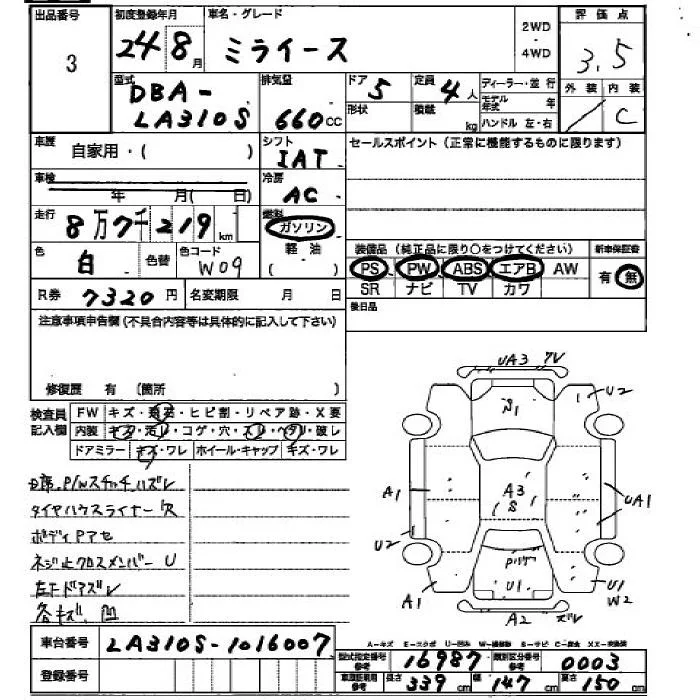 出品番号 初度登録年月 車名・グレード 2WD・4WD 評価点
3 24 8月 ミライース 3.5
型式 排気量 ドア 定員 ディーラー・並行 外装 内装
DBA- 5 4人 モデル年式 年 C
LA310S 660cc 形状 積載 kg ハンドル 左・右
車歴 シフト セールスポイント(正常に機能するものに限ります)
自家用・( ) IAT
車検 冷房
年 月( 日) AC
走行 燃料
8万7千219km ガソリン
色 色替 色コード 軽油 装備品(純正品に限り○をつけてください) 新車保証書
白 W09 ( ) PS PW ABS エアB AW 有 無
R券 7320円 名変期限 月 日 SR ナビ TV カワ
注意事項申告欄(不具合内容等は具体的に記入して下さい) 後日品
修復歴 有 (箇所 )
検査員記入欄 FW キズ・飛石・ヒビ割・リペア跡・X要
内装 キズ・汚レ・コゲ・穴・スレ・ヘタリ・破レ
ドアミラー キズ・ワレ ホイール・キャップ キズ・ワレ
UA3
U2
S1
A1 A3 UA1
S
U2
U1
A1 U1
W2
A2 ズレ
P/Wスイッチハズレ
タイヤハウスライナー
ボディアセ
ネジ止クロスメンバー U
左下ドアズレ
各キズ、凹
車台番号 LA310S-1016007
A-キズ E-エクボ U-凹み W-補修跡 B-サビ C-腐食 XX-交換済
登録番号 型式指定番号参考 16987 類別区分番号参考 0003
車庫証明用参考 長さ 339cm 幅 147cm 高さ 150cm